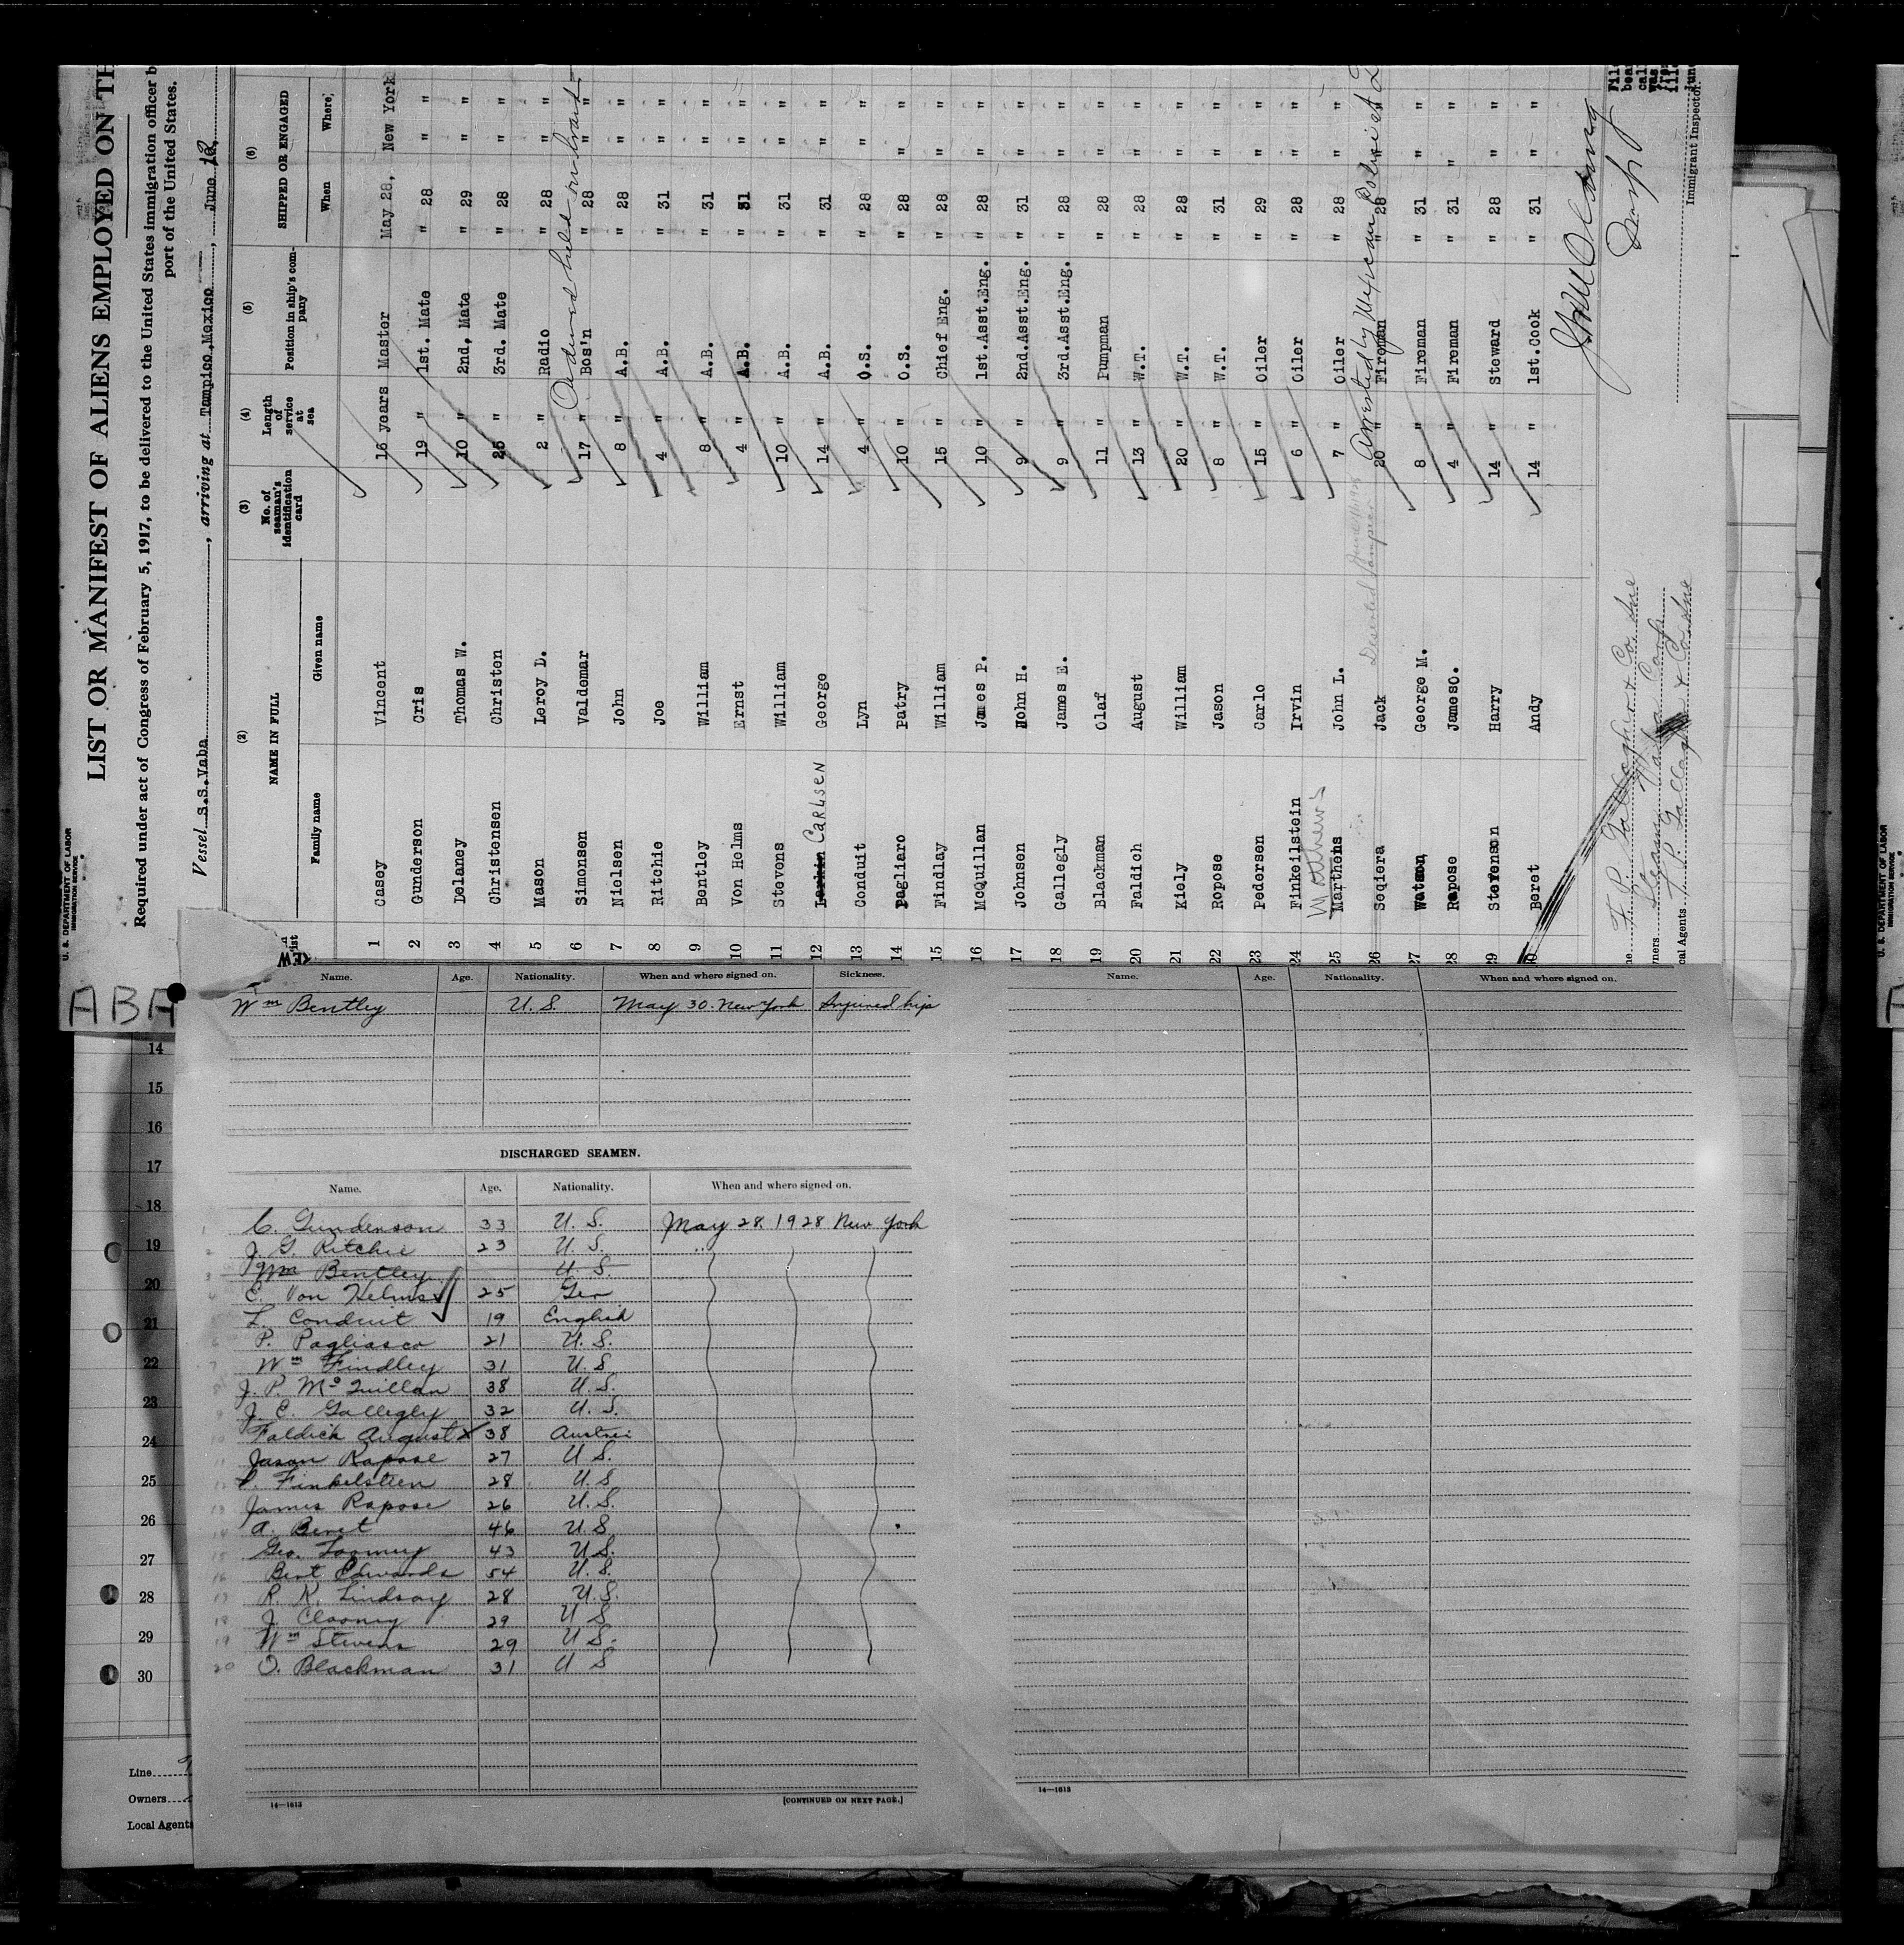 U. S. DEPARTMENT OF LABOR
IMMIGRATION SERVICE
LIST OR MANIFEST OF ALIENS EMPLOYED ON TH
Required under act of Congress of February 5, 1917, to be delivered to the United States immigration officer b
port of the United States.
Vessel S.S.Yaba, arriving at Tampico, Mexico, June 12,
(2) (3) (4) (5) (6)
NAME IN FULL No. of seaman's identification card Length of service at sea Position in ship's company SHIPPED OR ENGAGED
Family name Given name When Where
1 Casey Vincent 16 years Master May 28, New York
2 Gunderson Cris 19 " 1st. Mate " 28 " "
3 Delaney Thomas W. 10 " 2nd, Mate " 29 " "
4 Christensen Christen 25 " 3rd. Mate " 28 " "
5 Mason Leroy D. 2 " Radio " 28 " "
6 Simonsen Valdemar 17 " Bos'n " 28 " "
7 Nielsen John 8 " A.B. " 28 " "
8 Ritchie Joe 4 " A.B. " 31 " "
9 Bentley William 8 " A.B. " 31 " "
10 Von Helms Ernst 4 " A.B. " 31 " "
11 Stevens William 10 " A.B. " 31 " "
12 Carlsen George 14 " A.B. " 31 " "
13 Conduit Lyn 4 " O.S. " 28 " "
14 Pagliaro Patry 10 " O.S. " 28 " "
15 Findlay William 15 " Chief Eng. " 28 " "
16 McQuillan James P. 10 " 1st.Asst.Eng. " 28 " "
17 Johnsen John H. 9 " 2nd.Asst.Eng. " 31 " "
18 Gallegly James E. 9 " 3rd.Asst.Eng. " 28 " "
19 Blackman Olaf 11 " Pumpman " 28 " "
20 Faldich August 13 " W.T. " 28 " "
21 Kiely William 20 " W.T. " 28 " "
22 Ropose Jason 8 " W.T. " 31 " "
23 Pedersen Carlo 15 " Oiler " 29 " "
24 Finkeilstein Irvin 6 " Oiler " 28 " "
Mathews
25 Marthens John L. 7 " Oiler " 28 " "
Deserted Tampico
Arrested by Mexican Police at
26 Seqiera Jack 20 " Fireman " 28 " "
27 Watson George M. 8 " Fireman " 31 " "
28 Rapose James O. 4 " Fireman " 31 " "
29 Stefenson Harry 14 " Steward " 28 " "
0 Beret Andy 14 " 1st.Cook " 31 " "
Immigrant Inspector.
ABA
Name. Age. Nationality. When and where signed on. Sickness.
Wm Bentley U.S. May 30. New York Injured hip
DISCHARGED SEAMEN.
Name. Age. Nationality. When and where signed on.
C. Gunderson 33 U.S. May 28. 1928 New York
J. G. Ritchie 23 U.S. "
Wm Bentley U.S.
E. Von Helms 25 Ger
L. Conduit 19 English
P. Pagliasco 21 U.S.
Wm Findley 31 U.S
J. P. McQuillan 38 U.S.
J. E. Gallegly 32 U.S.
Faldich August x 38 Austria
Jason Rapose 27 U.S.
I. Finkelstien 28 U.S
James Rapose 26 U.S.
A. Beret 46 U.S
Geo. Toomey 43 U.S.
Bert Edwards 54 U.S.
R. K. Lindsay 28 U.S.
J. Clooney 29 U S
Wm Stevens 29 U S.
O. Blackman 31 U S
14—1613
[CONTINUED ON NEXT PAGE.]
Name. Age. Nationality. When and where signed on.
14—1613
14
15
16
17
18
19
20
21
22
23
24
25
26
27
28
29
30
Line
Owners
Local Agents